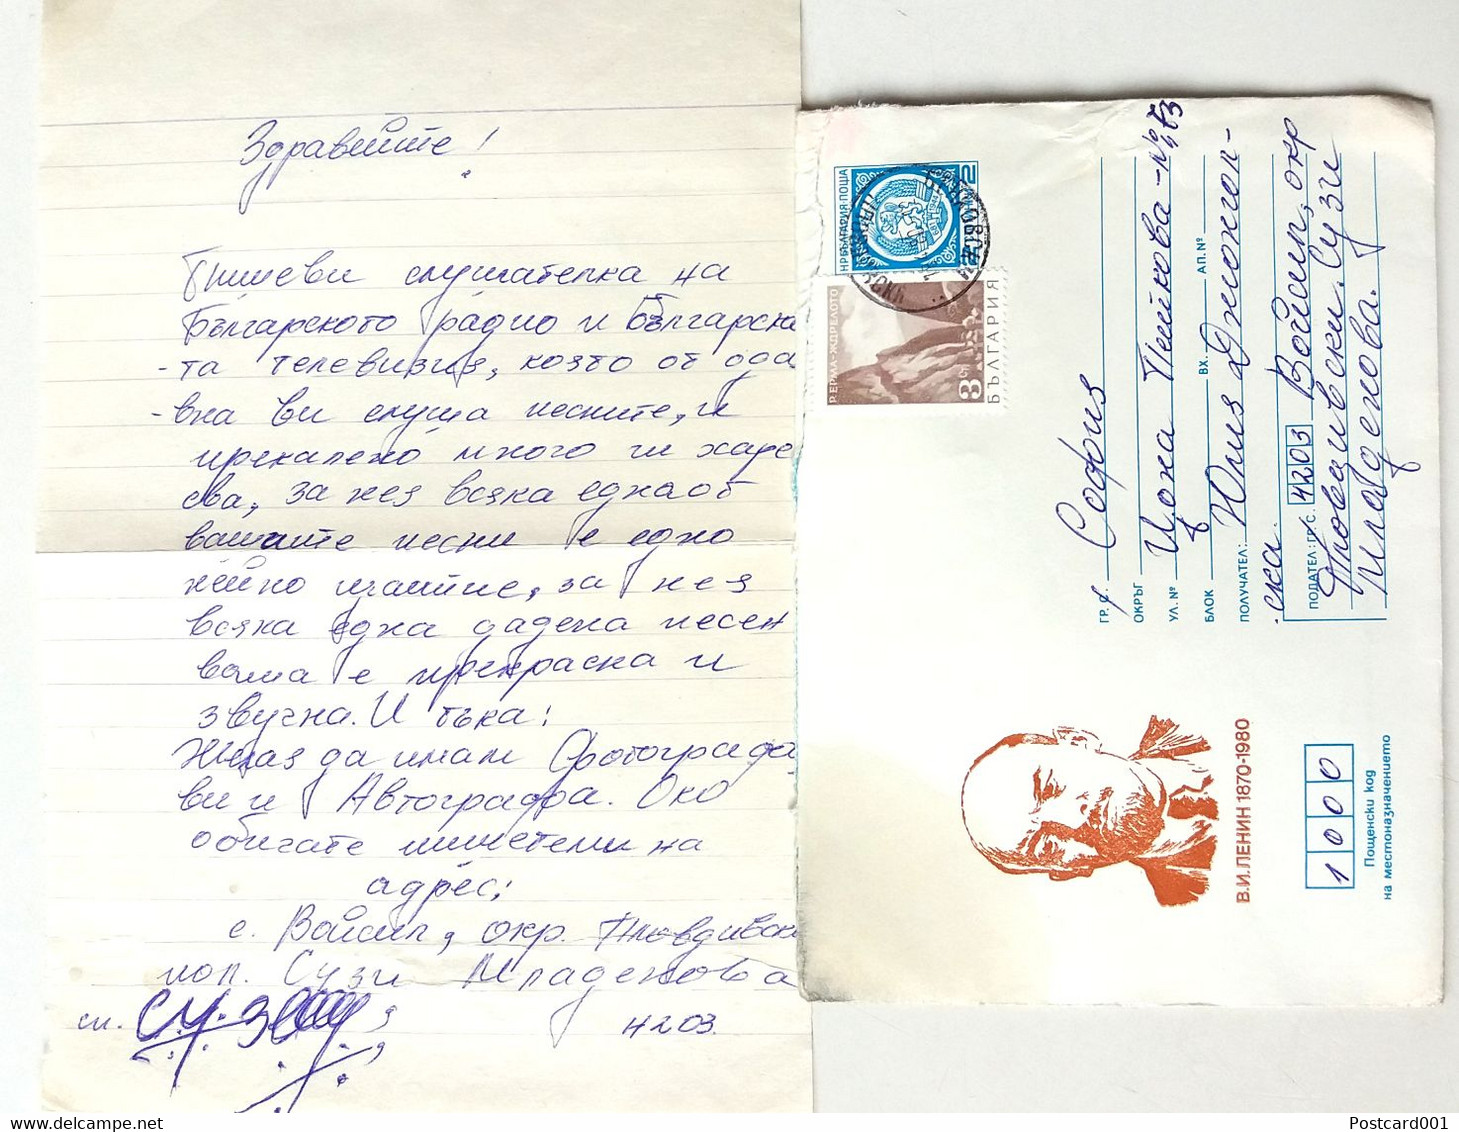 Здравейте!
Пишеви слушателка на
Българското радио и Българска
-та телевизия, която от одa
-вна ви слуша песните, и
прекалено много ги харе
сва, за нея всяка една от
вашите песни е едно
нейно
за нея
всяка една дадена песен
ваша е прекрасна и
звучна. И тъка:
Желая да имам Фотографа
ви и Автографа. Око
обичате пишетеми на
адрес:
с. Войсил, окр. Пловдивски
пол. Сузи Младенова
4203.
НР БЪЛГАРИЯ·ПОЩА
2
Р. ЕРМА-ЖДРЕЛОТО
3 СТ
БЪЛГАРИЯ
ГР. С. София
ОКРЪГ
УЛ. № Цона Пейкова - №
БЛОК ВХ. АП. №
ПОЛУЧАТЕЛ: Юлия Джонгол-
ска.
ПОДАТЕЛ: ГР. С. 4203 Войсил, окр
Пловдивски. Сузи
Младенова.
В.И. ЛЕНИН 1870-1980
1000
Пощенски код
на местоназначението
Postcard001